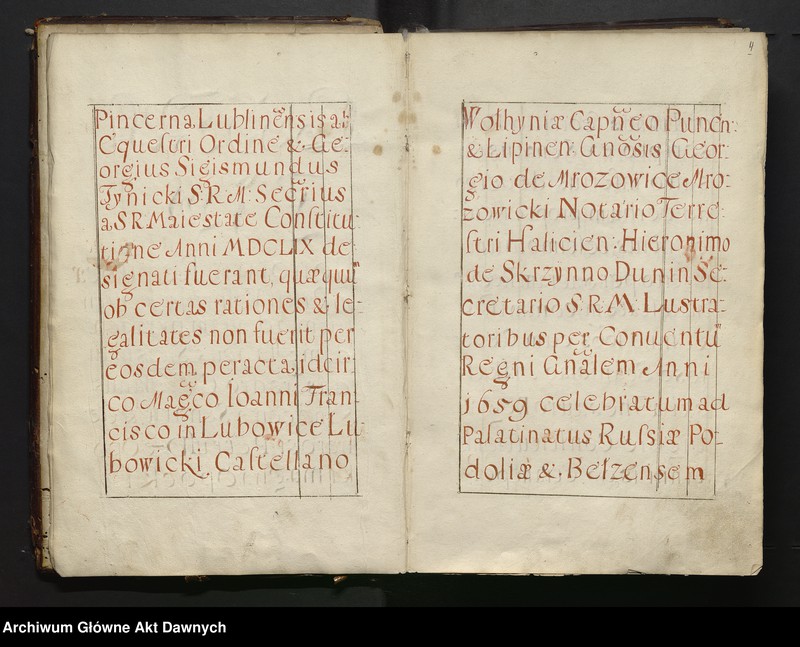 Pincerna Lublinensis ab
Equestri Ordine & Ge-
orgius Sigismundus
Tynicki S.R.M. Secrius
a S R Maiestate Constitu
tione Anni MDCLIX de
signati fuerant, quæquū
ob certas rationes & le-
galitates non fuerit per
eosdem peracta, idcir-
co Magco Ioanni Fran-
cisco in Lubowice Lu
bowicki, Castellano
4
Wolhyniæ Capneo Punen:
& Lipinen: Gnosis Geor-
gio de Mrozowice Mro:
zowicki Notario Terre-
stri Halicien: Hieronimo
de Skrzynno Dunin Se:
cretario S.R.M. Lustra:
toribus per Conuentū
Regni Gnalem Anni
1659 celebratum ad
Palatinatus Russiæ Po:
doliæ & Belzensem
Archiwum Główne Akt Dawnych